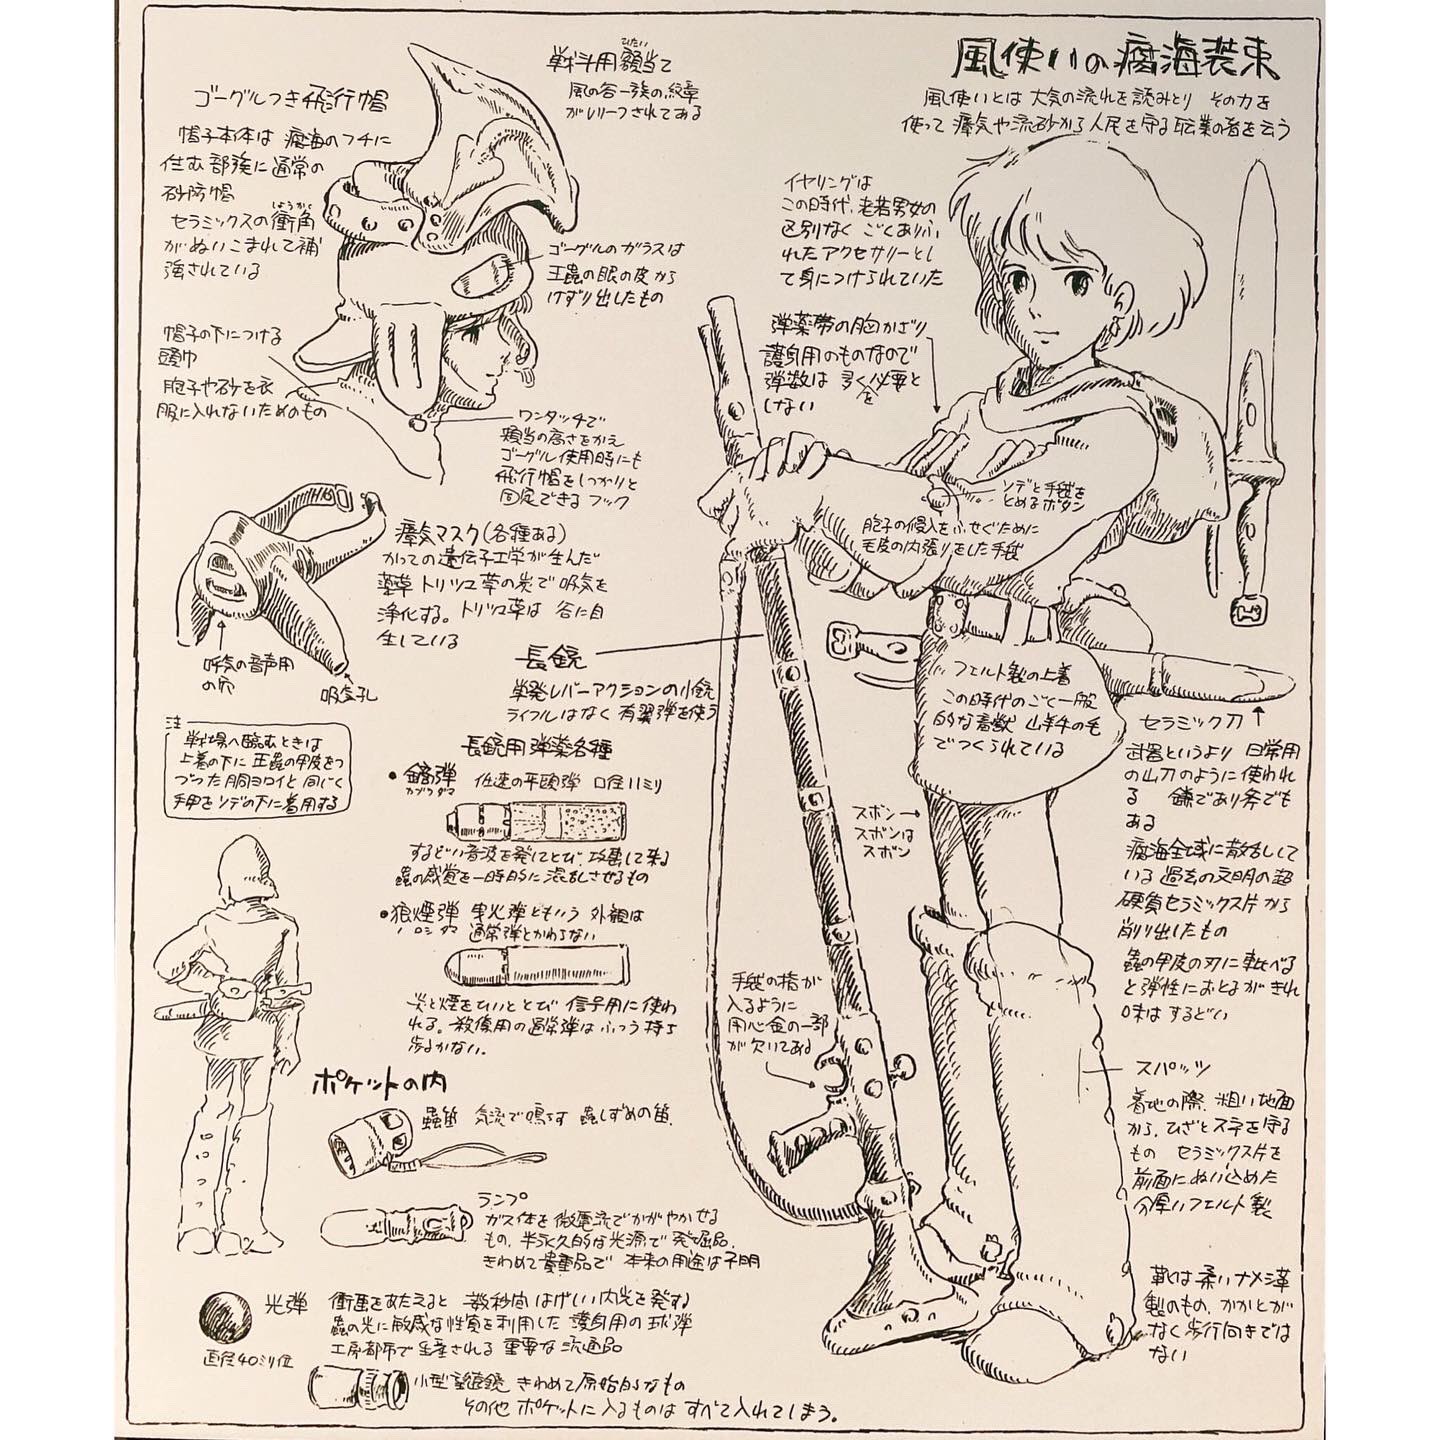 風使いの腐海装束
風使いとは 大気の流れを読みとり その力を
使って 瘴気や流砂から人民を守る職業の者を云う
戦斗用額当て
ひたい
風の谷一族の紋章
がレリーフされてある
ゴーグルつき飛行帽
帽子本体は 腐海のフチに
住む部族に通常の
砂防帽
セラミックスの衝角
しょうかく
がぬいこまれて補
強されている
ゴーグルのガラスは
王蟲の眼の皮から
けずり出したもの
帽子の下につける
頭巾
胞子や砂を衣
服に入れないためのもの
ワンタッチで
頬当の高さをかえ
ゴーグル使用時にも
飛行帽をしっかりと
固定できるフック
イヤリングは
この時代、老若男女の
区別なく ごくありふ
れたアクセサリーとし
て身につけられていた
弾薬帯の胸かざり
護身用のものなので
弾数は 多くを必要と
しない
ソデと手袋を
とめるボタン
胞子の侵入をふせぐために
毛皮の内張りをした手袋
瘴気マスク(各種ある)
かつての遺伝子工学が生んだ
薬草トリツユ草の炭で吸気を
浄化する。トリツユ草は 谷に自
生している
呼気の音声用
の穴
吸気孔
長銃
単発レバーアクションの小銃
ライフルはなく 有翼弾を使う
長銃用弾薬各種
・鏑弾 低速の平頭弾 口径11ミリ
カブラダマ
するどい音波を発してとび、攻撃して来る
蟲の感覚を一時的に混乱させるもの
・狼煙弾 曳火弾ともいう 外観は
ノロシダマ 通常弾とかわらない
炎と煙をひいてとび 信号用に使わ
れる。殺傷用の通常弾はふつう持ち
歩かない。
注
戦場へ臨むときは
上着の下に 王蟲の甲皮をつ
づった胴ヨロイと 同じく
手甲をソデの下に着用する
フェルト製の上着
この時代のごく一般
的な家畜 山羊牛の毛
でつくられている
ズボン→
ズボンは
ズボン
セラミック刀
武器というより 日常用
の山刀のように使われ
る 鎌であり斧でも
ある
腐海全域に散乱して
いる過去の文明の超
硬質セラミックス片から
削り出したもの
蟲の甲皮の刃に較べる
と弾性におとるがきれ
味はするどい
手袋の指が
入るように
用心金の一部
が欠いてある
スパッツ
着地の際、粗い地面
から、ひざとスネを守る
もの セラミックス片を
前面にぬい込めた
分厚いフェルト製
靴は柔いナメシ革
製のもの、かかとが
なく歩行向きでは
ない
ポケットの内
蟲笛 気流で鳴らす 蟲しずめの笛
ランプ
ガス体を微電流でかがやかせる
もの、半永久的な光源で 発掘品、
きわめて貴重品で 本来の用途は不明
光弾 衝撃をあたえると 数秒間はげしい閃光を発する
蟲の光に敏感な性質を利用した 護身用の球弾
工房都市で生産される 重要な流通品
直径40ミリ位
小型望遠鏡 きわめて原始的なもの
その他 ポケットに入るものは すべて入れてしまう。